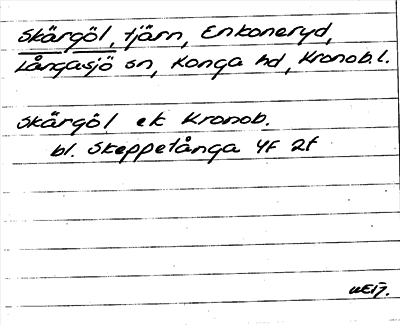 Skärgöl, tjärn, Enkoneryd,
Långasjö sn, Konga hd, Kronob.l.
Skärgöl ek Kronob.
bl. Skeppetånga 4F 2f